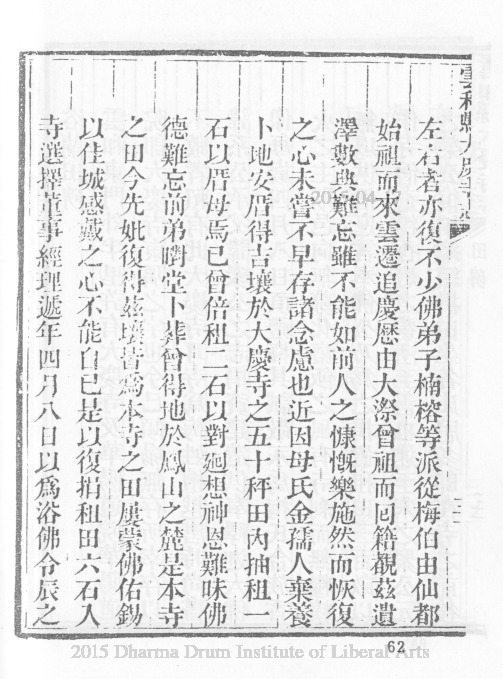 雲和縣大慶寺志
左右者亦復不少佛弟子楠榕等派從梅伯由仙都
始祖而來雲遷追慶歷由大漈曾祖而回籍覩茲遺
澤數典難忘雖不能如前人之慷慨樂施然而恢復
之心未嘗不早存諸念慮也近因母氏金孺人棄養
卜地安厝得吉壤於大慶寺之五十秤田內抽租一
石以厝母焉已曾倍租二石以對廻想神恩難昧佛
德難忘前弟嚼堂卜葬曾得地於鳳山之麓是本寺
之田今先妣復得茲壤皆爲本寺之田屢蒙佛佑錫
以佳城感戴之心不能自已是以復捐租田六石入
寺選擇董事經理遞年四月八日以爲浴佛令辰之
62
2015 Dharma Drum Institute of Liberal Arts